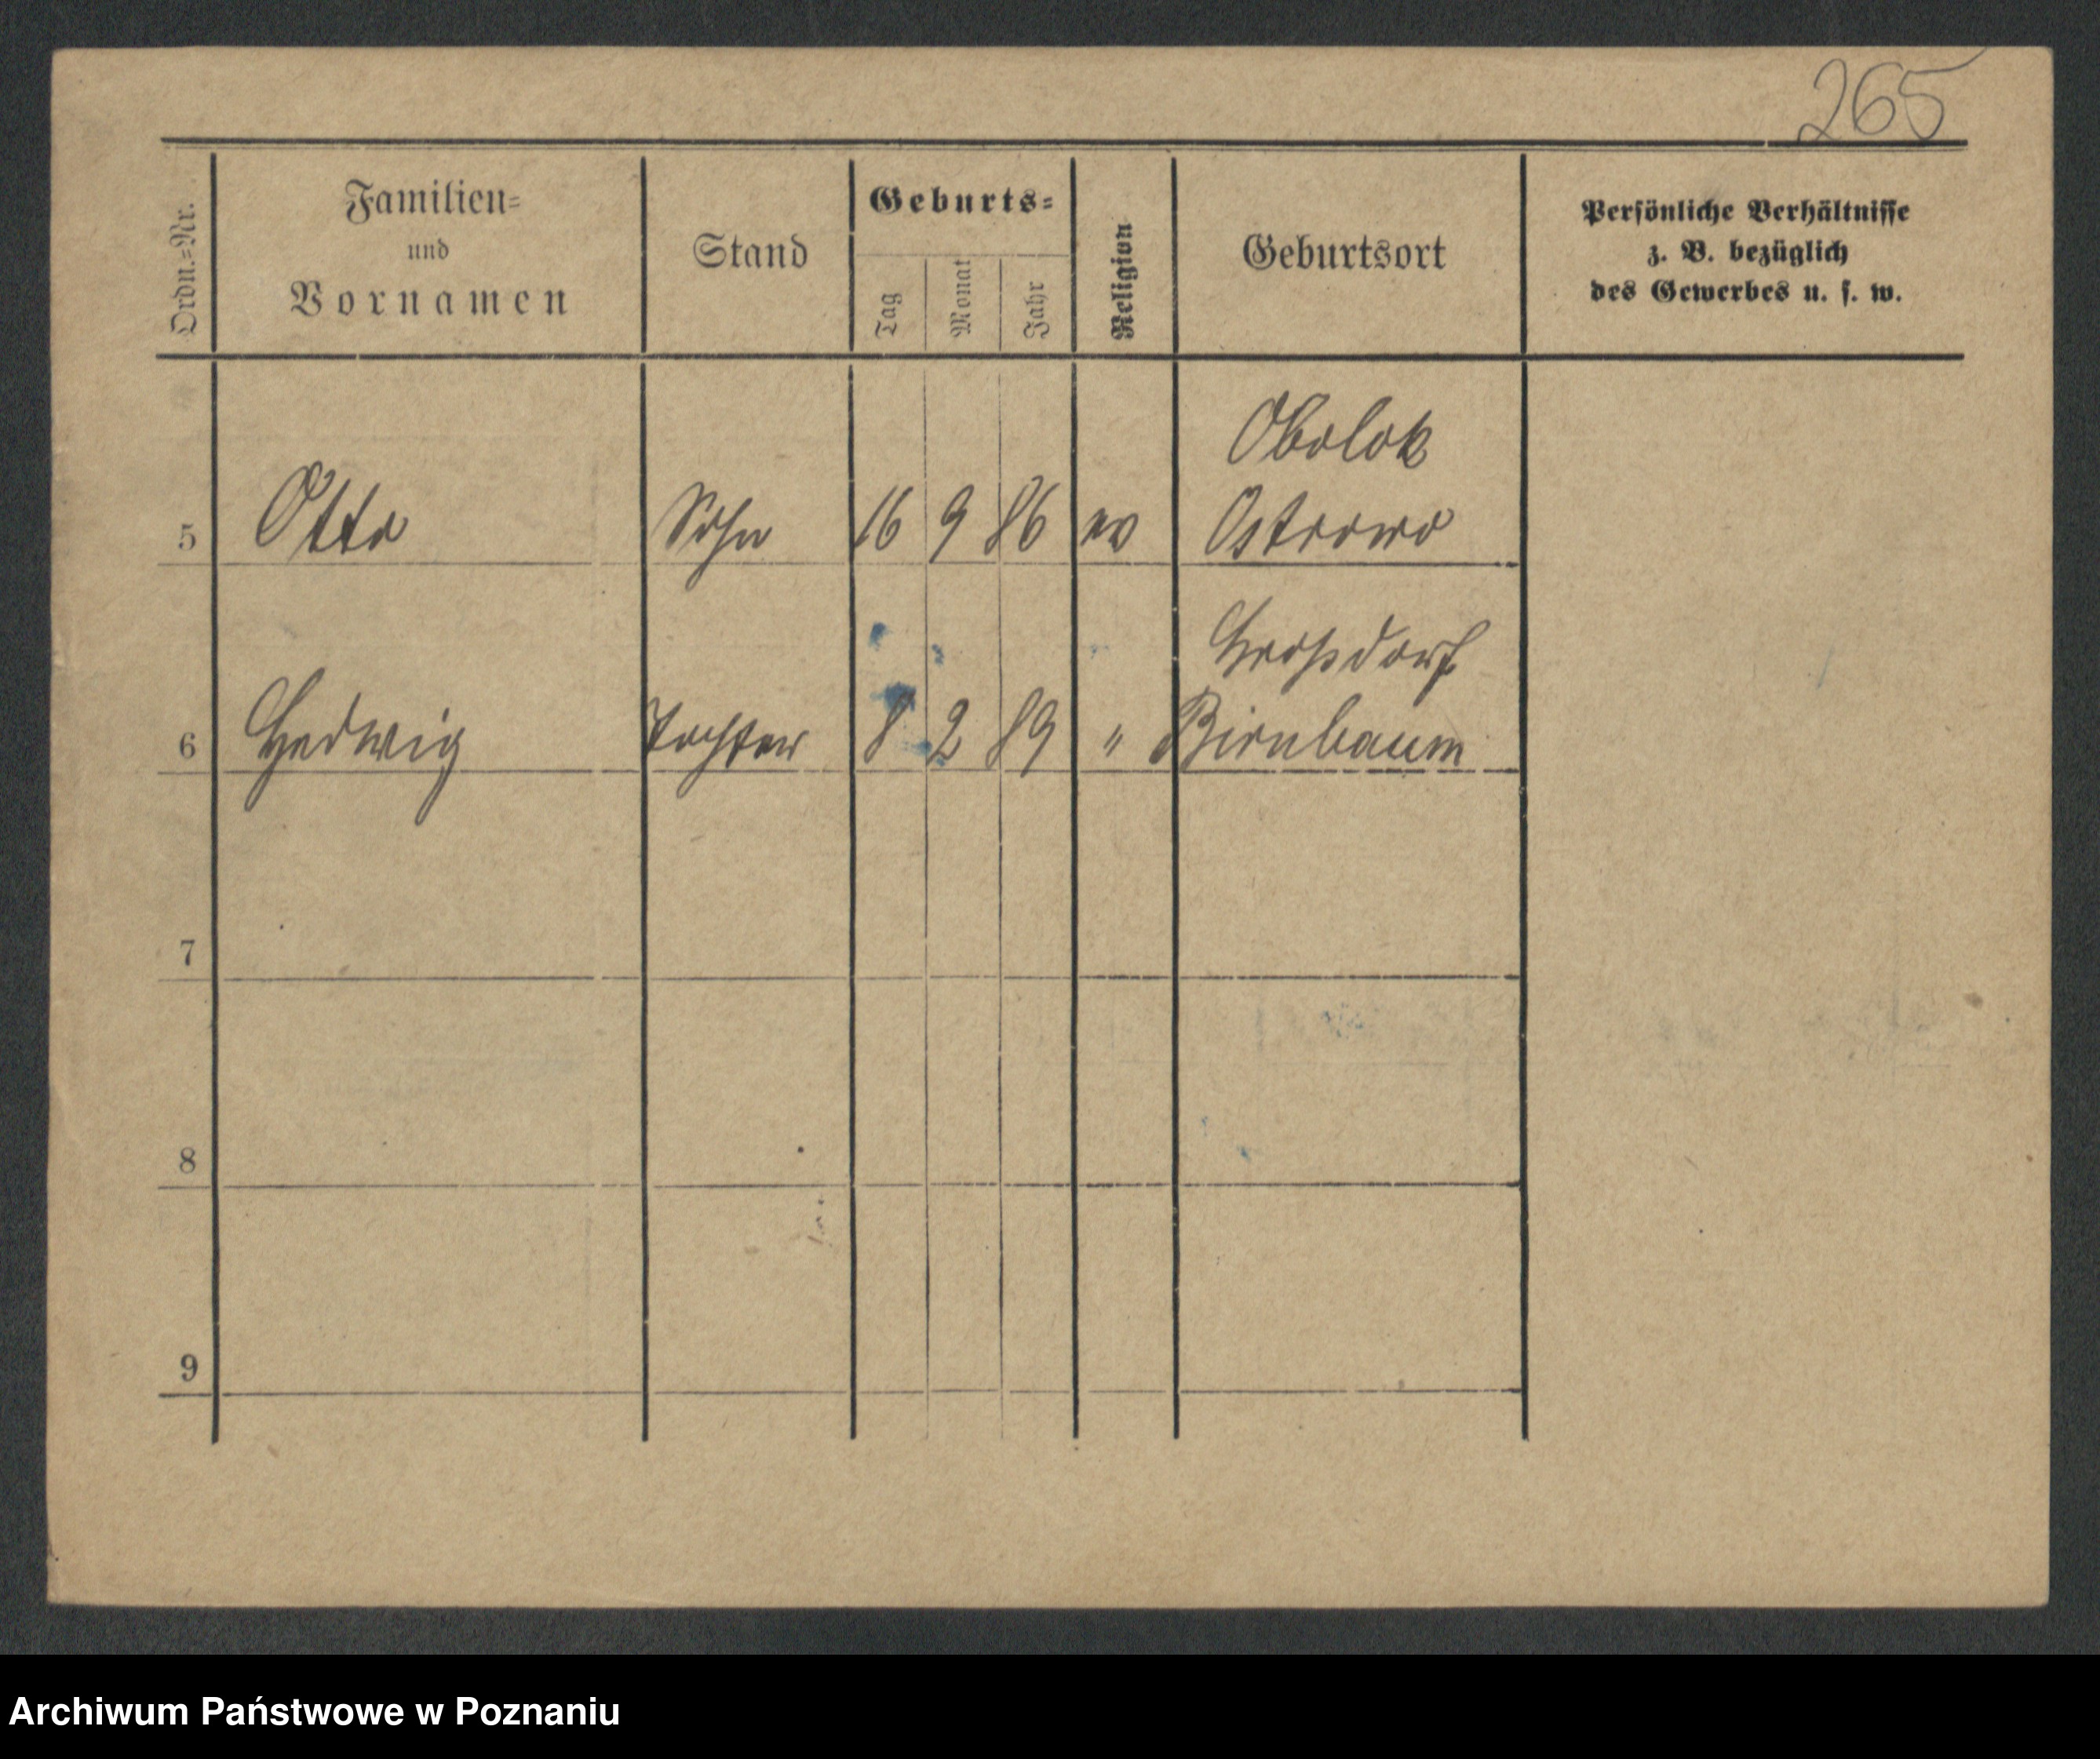 265
Ordn.=Nr.
Familien=
und
Vornamen
Stand
Geburts=
Tag
Monat
Jahr
Religion
Geburtsort
Persönliche Verhältnisse
z. B. bezüglich
des Gewerbes u. s. w.
Obolok
5 Otto Sohn 16 9 86 ev Ostrowo
Großdorf
6 Hedwig Tochter 8 2 89 " Birnbaum
7
8
9
Archiwum Państwowe w Poznaniu